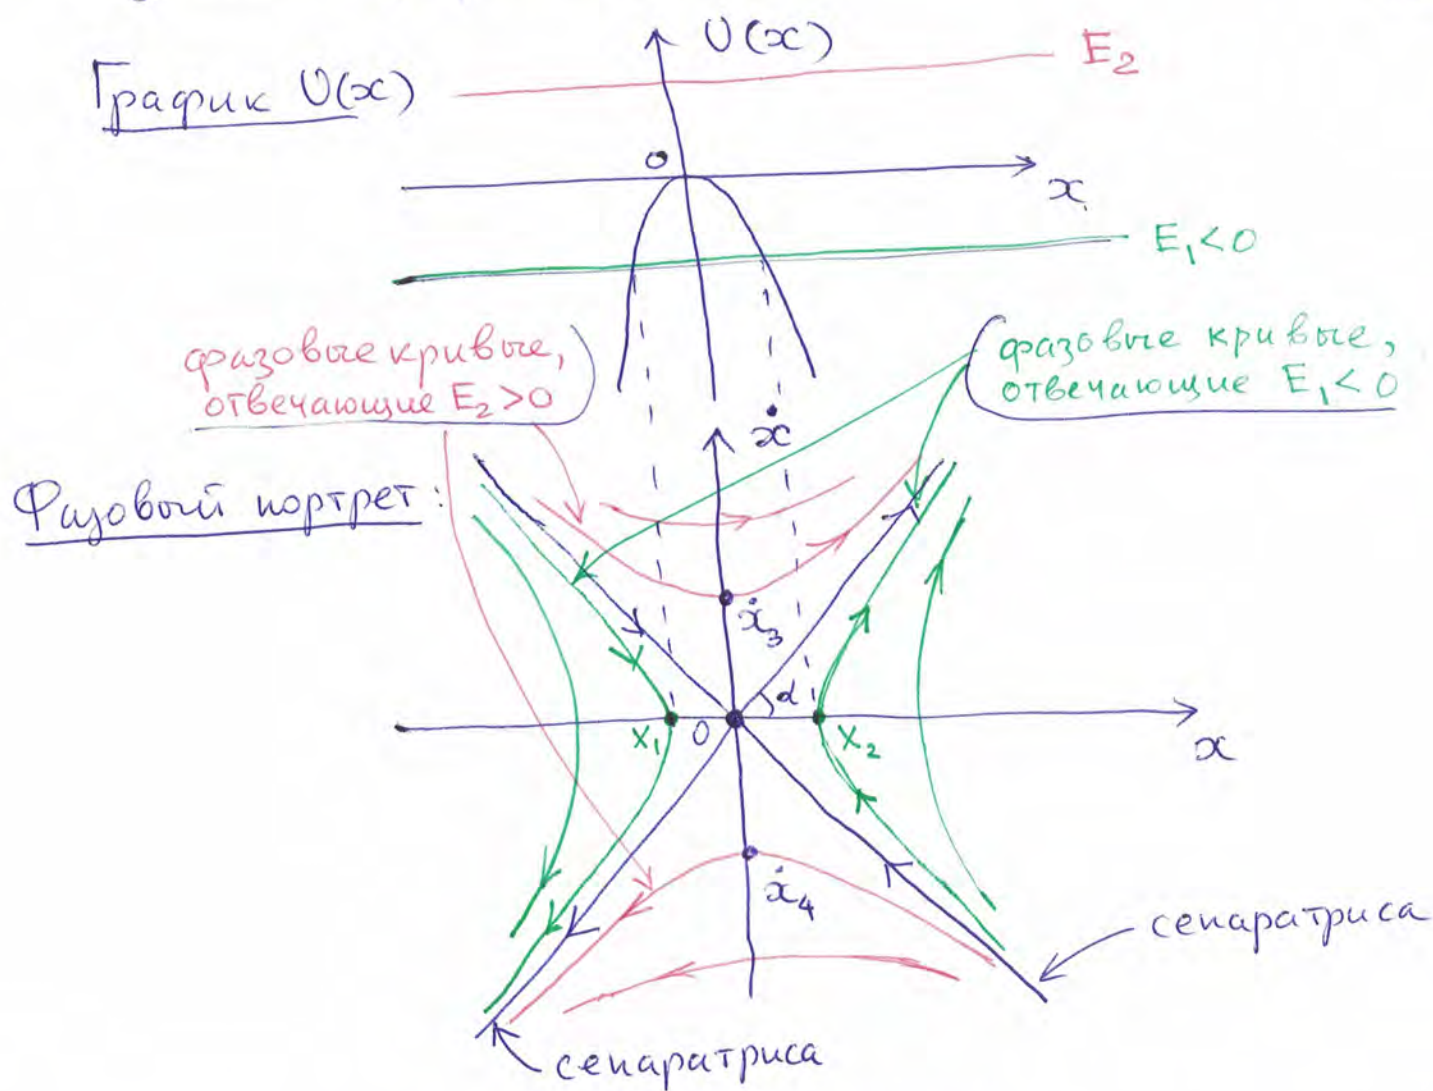 U(x)
E₂
График U(x)
0
x
E₁<0
фазовые кривые,
отвечающие E₂>0
фазовые кривые,
отвечающие E₁<0
ẋ
Фазовый портрет:
ẋ₃
α
x₁
0
x₂
x
ẋ₄
сепаратриса
сепаратриса